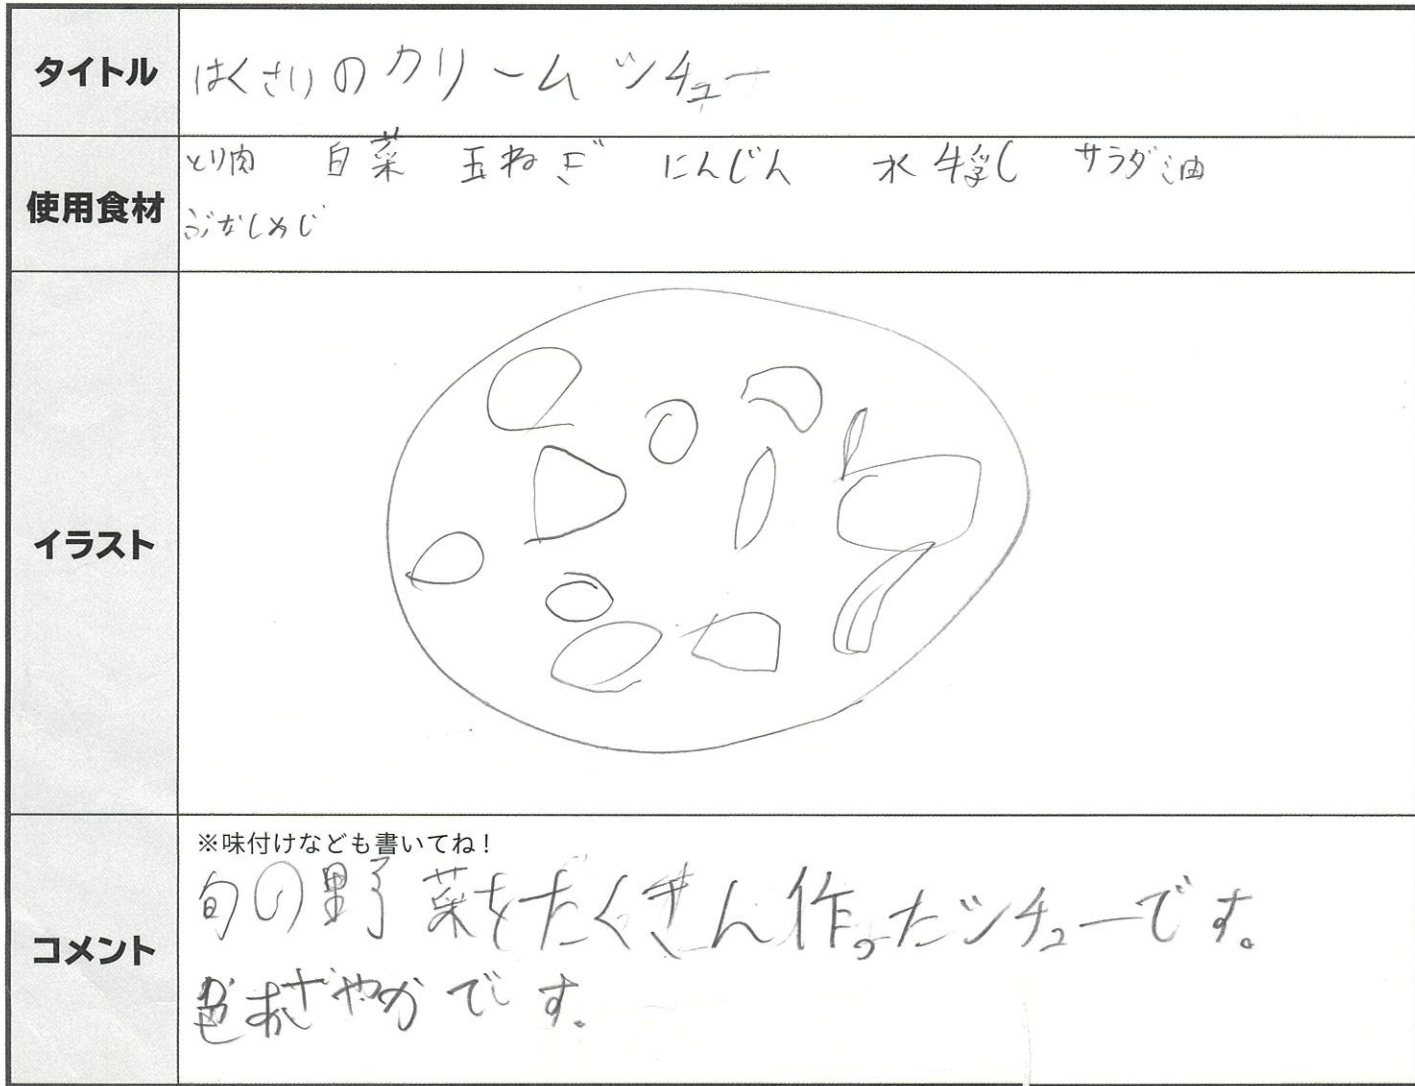 タイトル
はくさいのクリームシチュー
使用食材
とり肉 白菜 玉ねぎ にんじん 水 牛乳 サラダ油
ぶなしめじ
イラスト
コメント
※味付けなども書いてね！
旬の野菜をたくさん作ったシチューです。
色あざやかです。